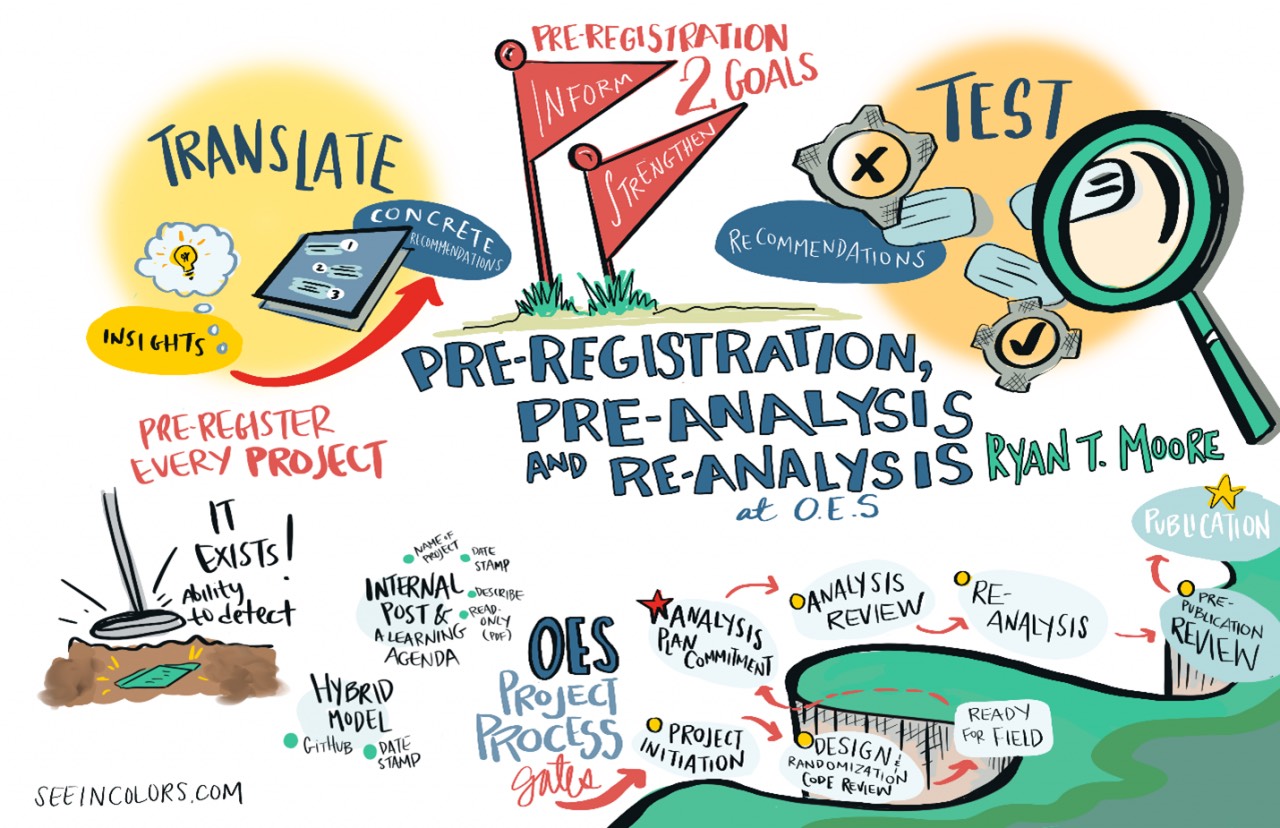 PRE-REGISTRATION
2 GOALS
INFORM
STRENGTHEN
TRANSLATE
INSIGHTS
1
2
3
CONCRETE
RECOMMENDATIONS
TEST
RECOMMENDATIONS
PRE-REGISTRATION,
PRE-ANALYSIS
AND RE-ANALYSIS
at O.E.S
RYAN T. MOORE
PRE-REGISTER
EVERY PROJECT
IT
EXISTS!
Ability
to detect
NAME OF
PROJECT
DATE
STAMP
INTERNAL
POST &
A LEARNING
AGENDA
DESCRIBE
READ-
ONLY
(PDF)
HYBRID
MODEL
GITHUB
DATE
STAMP
OES
PROJECT
PROCESS
gates
PROJECT
INITIATION
DESIGN &
RANDOMIZATION
CODE REVIEW
READY
FOR FIELD
ANALYSIS
PLAN
COMMITMENT
ANALYSIS
REVIEW
RE-
ANALYSIS
PRE-
PUBLICATION
REVIEW
PUBLICATION
SEEINCOLORS.COM